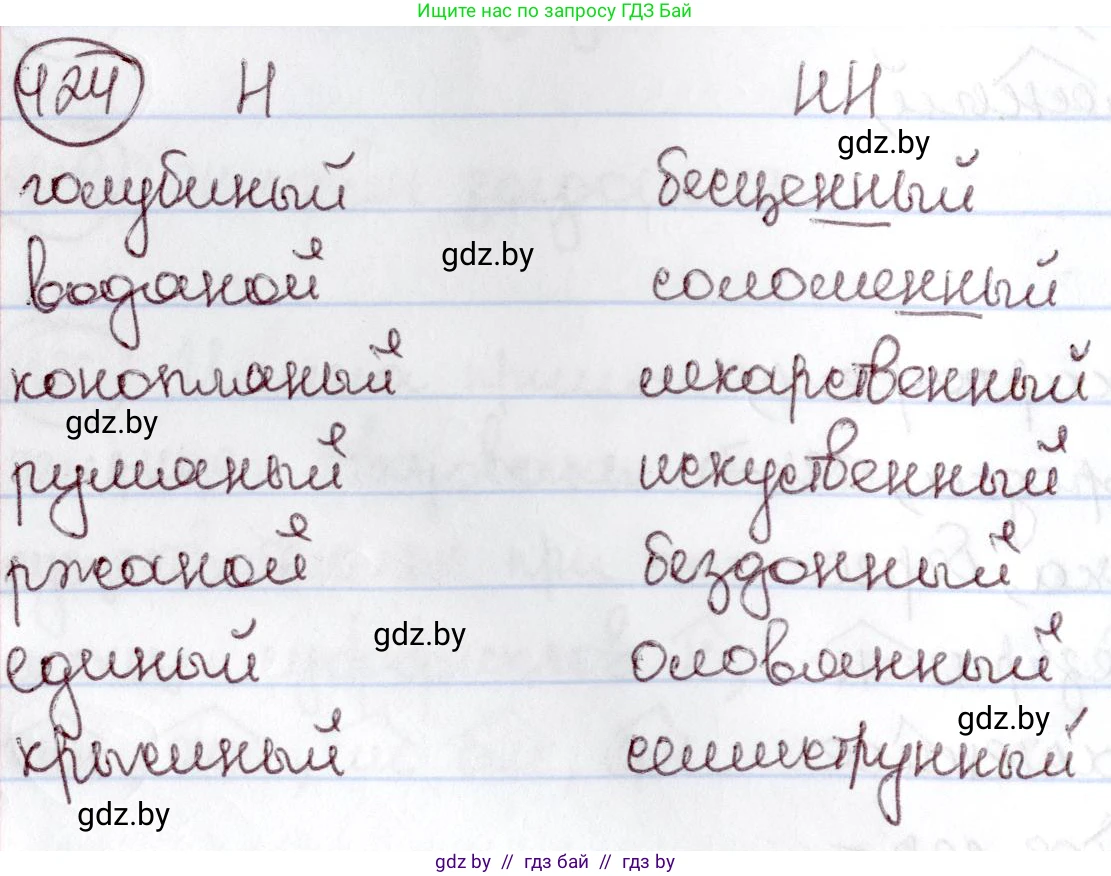 Ищите нас по запросу ГДЗ Бай
424 Н НН
gdz.by
голубиный бесценный
gdz.by
водяной соломенный
конопляный лекарственный
gdz.by
румяный искуственный
ржаной бездонный
gdz.by
единый оловянный
gdz.by
крысиный семиструнный
gdz.by
gdz.by // гдз бай // гдз by